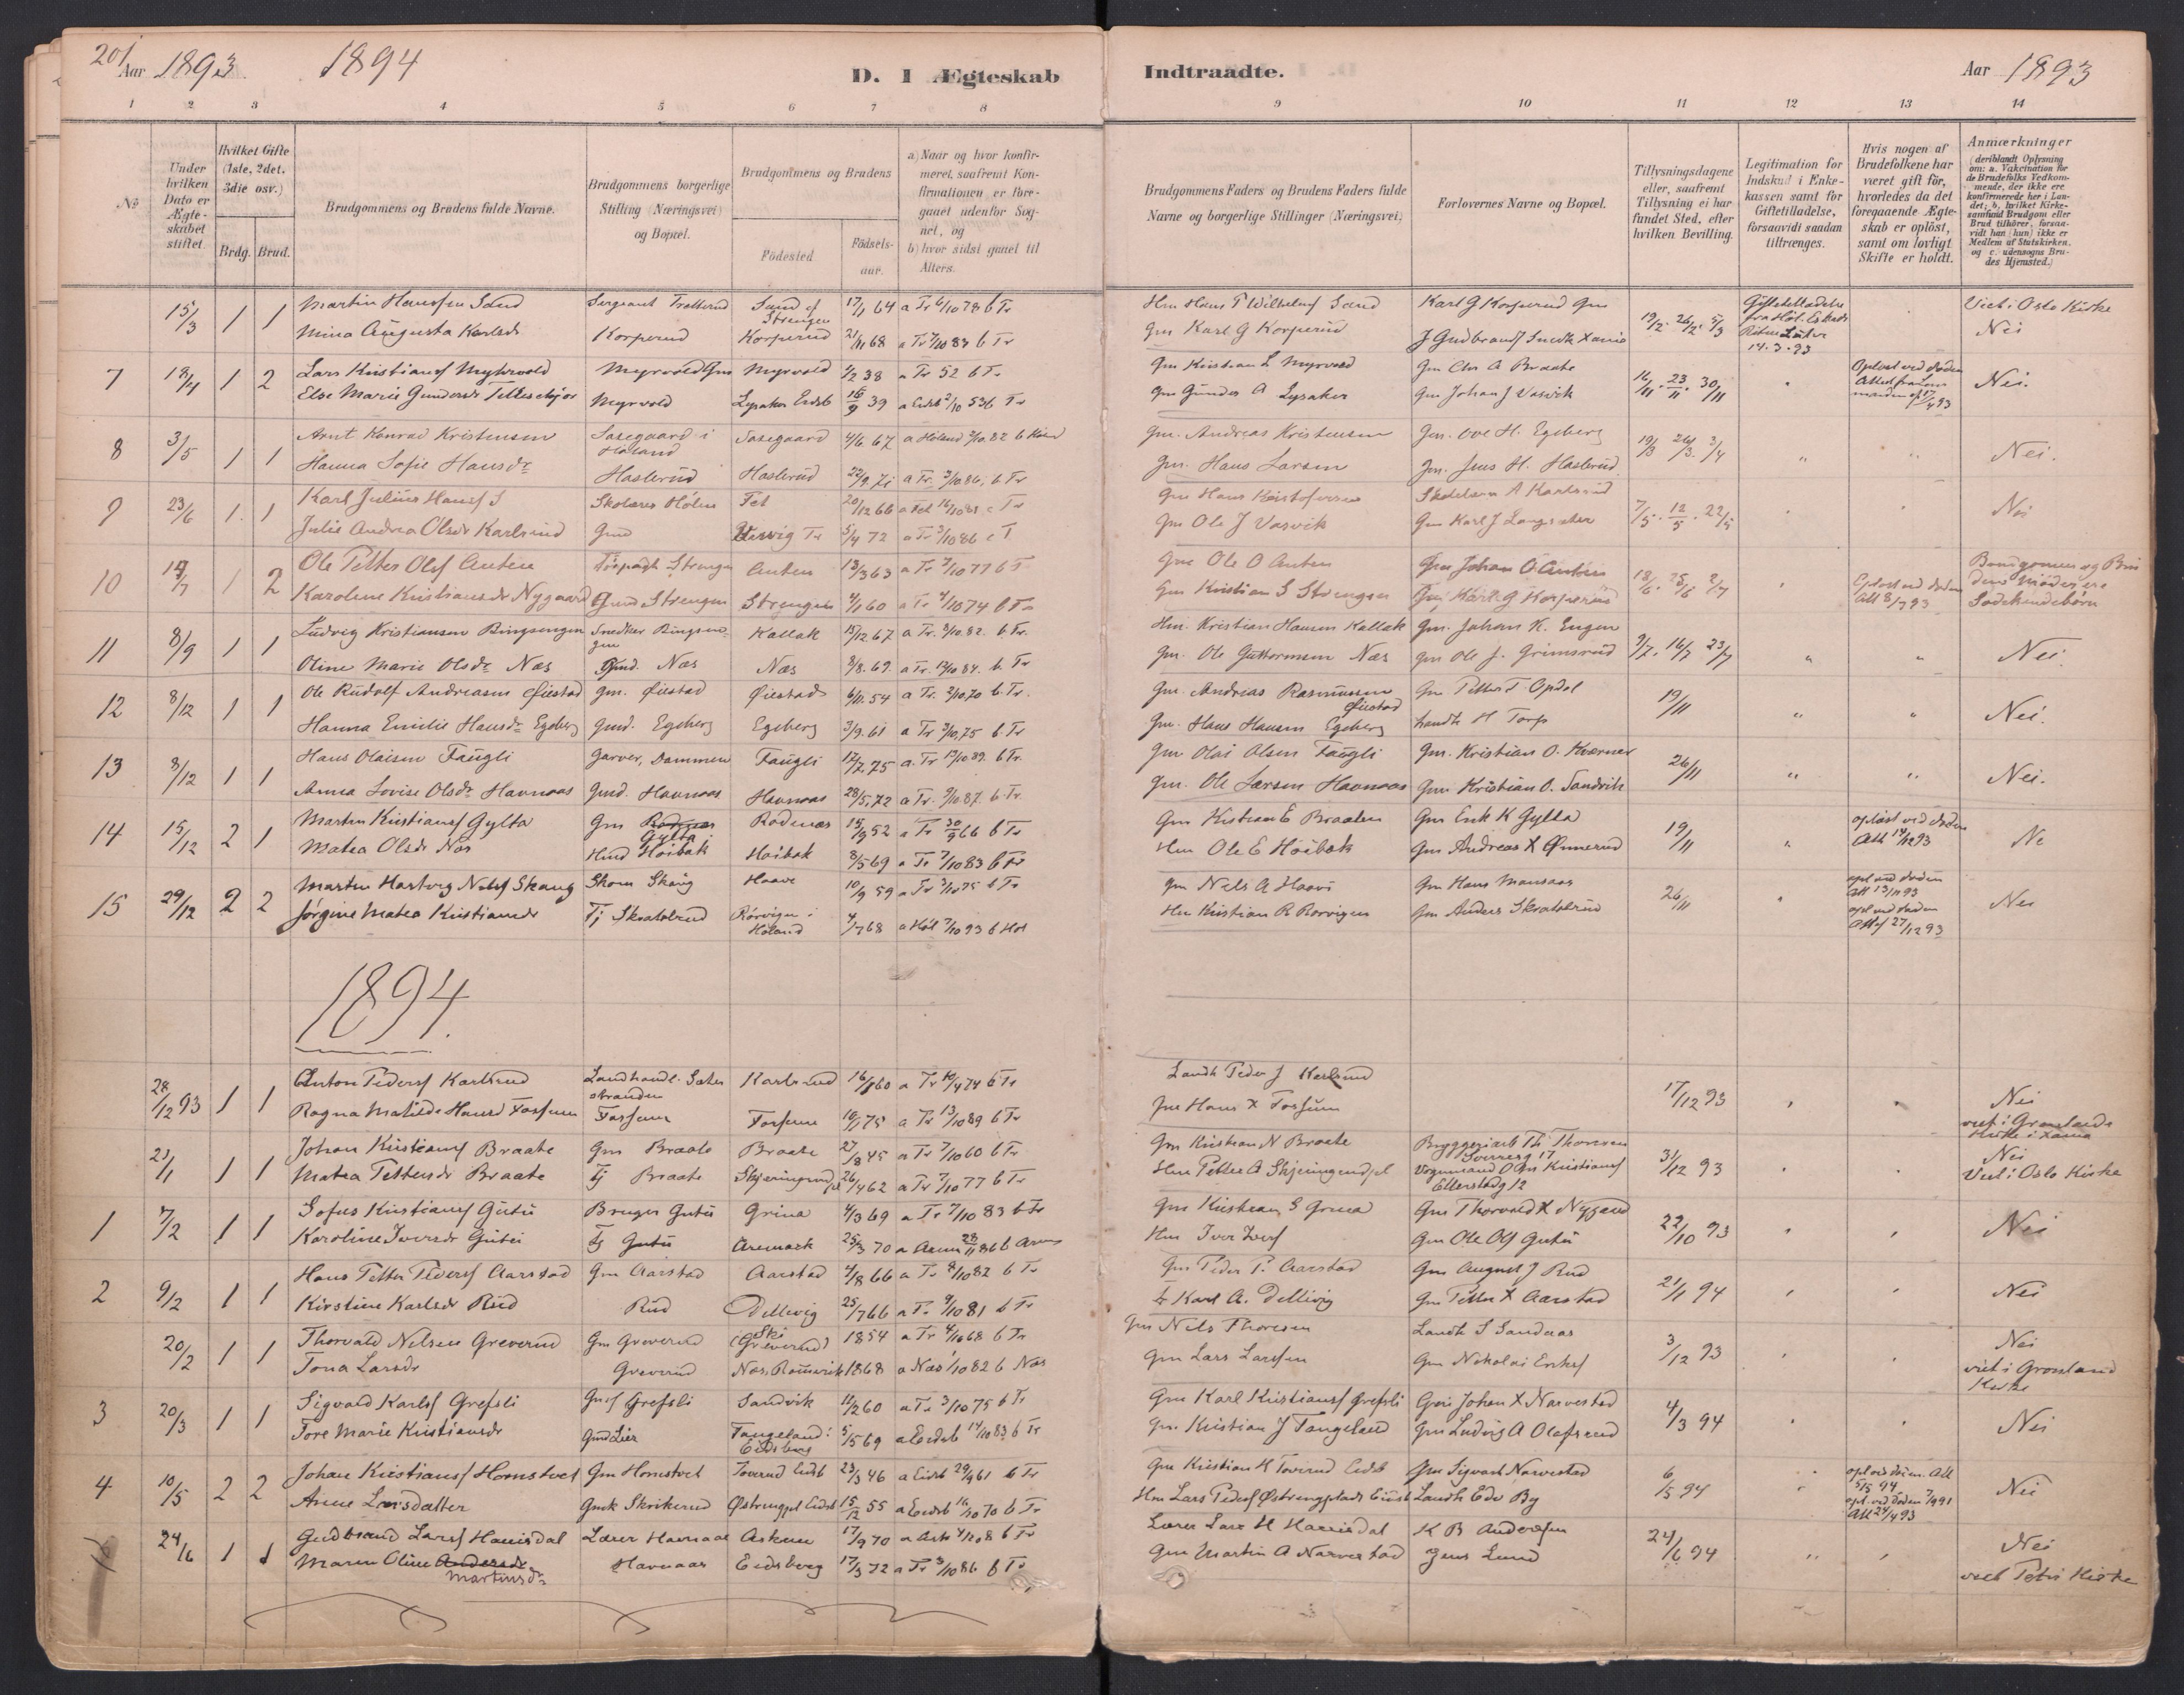 201
Aar 1893. 1894
D. I Ægteskab Indtraadte.
Aar 1893
1 2 3 4 5 6 7 8 9 10 11 12 13 14
No
Under hvilken Dato er Ægteskabet stiftet.
Hvilket Gifte (1ste, 2det, 3die osv.)
Brdg. Brud.
Brudgommens og Brudens fulde Navne.
Brudgommens borgerlige Stilling (Næringsvei) og Bopæl.
Brudgommens og Brudens
Födested
Födselsaar.
a) Naar og hvor konfirmeret, saafremt Konfirmationen er foregaaet udenfor Sognet, og
b) hvor sidst gaaet til Alters.
Brudgommens Faders og Brudens Faders fulde Navne og borgerlige Stillinger (Næringsvei)
Forlovernes Navne og Bopæl.
Tillysningsdagene eller, saafremt Tillysning ei har fundet Sted, efter hvilken Bevilling.
Legitimation for Indskud i Enkekassen samt for Giftetilladelse, forsaavidt saadan tiltrænges.
Hvis nogen af Brudefolkene har været gift för, hvorledes da det foregaaende Ægteskab er oplöst, samt om lovligt Skifte er holdt.
Anmærkninger
(deriblandt Oplysning om: a. Vakcination for de Brudefolks Vedkommende, der ikke ere konfirmerede her i Landet; b. hvilket Kirkesamfund Brudgom eller Brud tilhører, forsaavidt han (hun) ikke er Medlem af Statskirken, og c. udensogns Brudes Hjemsted.)
15/3 1 1 Martin Hanssen Sand Sergeant 17/1 64 a Tr 6/10 78 b Tr Karl G Korperud Gm 19/2. 26/2. 5/3 Viet i Oslo Kirke
Mina Augusta Karlsdr Korperud Korperud 21/11 68 a Tr 7/10 83 b Tr Gm Karl G Korperud 14.3.93 Nei
7 18/4 1 2 Lars Kristiansf Myhrvold Myrvold Gm Myrvold 4/2 38 a Tr 52 b Tr Gm Kristian L Myrvold Gm Chr A Braate 16/11. 23/11. 30/11 Oplöst ved döden Nei.
Else Marie Gundersdr Myrvold Lysaker Eidsb 16/9 39 a Eidsb 2/10 53 b Tr Gm Gunder A Lysaker Gm Johan J Vasvik
8 3/5 1 1 Arnt Konrad Kristensen Sosegaard i Höland Sosegaard 4/6 67 Gm. Andreas Kristensen Gm. Ove H. Egeberg 19/3 26/3. 3/4 " " Nei.
Hanna Sofie Hansdr Haslerud Haslerud 22/9 71 a Tr. 3/10 86, b Tr Gm. Hans Larsen Gm. Jens H. Haslerud
9 23/6 1 1 Karl Julius Hansf Skolærer Hölen Fet 20/12 66 Gm Hans Kristofersen 7/5. 12/5. 22/5 Nei
Julie Andrea Olsdr Karlsrud Gmd Vasvig Tr 5/4 72 a Tr 3/10 86 Gm Ole J Vasvik Gm Karl J Langsæter
10 1 2 Ole Petter Olsf Anten Strengen Anten 13/3 63 a Tr 7/10 77 b T Gm Ole O Anten Gm Johan O Anten 18/6. 25/6 2/7 Oplöst ved döden Att 8/7 93 Brudgommen og Brudens Mödre ere Södskendebörn
Karoline Kristiansdr Nygaard Gmd Strengen Strengen 4/1 60 a Tr 4/10 74 b Tr Gm Kristian S Strengen Gm Karl G Korperud
11 8/9 1 1 Ludvig Kristiansen Ringsengen Snedker Ringsengen Kallak 15/12 67 a Tr. 8/10.82. b. Tr. Hm. Kristian Hansen Kallak Gm. Johan K. Engen 9/7. 16/7 23/7 " " Nei.
Oline Marie Olsdr Næs Gmd. Næs Næs 8/8.69. a Tr. 12/10 84. b. Tr Gm. Ole Guttormsen Næs Gm Ole J. Grimsrud
12 8/12 1 1 Ole Rudolf Andreasen Øiestad Gm. Øiestad Øiestad 6/11.54 a Tr. 2/10,70 b. Tr. Gm. Andreas Rasmussen Øiestad Gm Petter F Opdal 19/11 " " Nei.
Hanna Emilie Hansdr Egeberg Gmd. Egeberg Egeberg 3/9.61 a Tr 3/10,75 b Tr Gm. Hans Hansen Egeberg Landh H Torp
13 8/12 1 1 Hans Olaisen Faugli Garver, Dammen Faugli 12/2,75 a. Tr 13/10 89. b Tr. Gm Olai Olsen Faugli Gm. Kristian O. Kværner 26/11 " " Nei.
Anna Lovise Olsdr Havnaas Gmd. Havnaas Havnaas 28/5,72 a Tr. 9/10 87. b Tr. Gm. Ole Larsen Havnaas Gm Kristian O. Sandvik
14 15/12 2 1 Martin Kristiansf Gylta Gm Gylta Rödenæs 15/9 52 a Tr 30/9 66 b Tr Gm Kristian E Braaten Gm Erik K Gylta 19/11 oplöst ved döden Att 14/12 93 Ne
Matea Olsdr Næs Hmd Höibak Höibak 8/5 69 a Tr 7/10 83 b Tr Hm Ole E Höibak Gm Andreas X Ønnerud
15 29/12 2 2 Martin Hartvig Nilsf Skaug Skom Skaug Haave 10/9 59 a Tr 3/10 75 b Tr Gm Nils A Haavi Gm Hans Monsaas 26/11 opl ved döden Att 13/11 93 Nei
Jörgine Matea Kristiansdr Tj Skratolrud Rörvigen i Höland 4/7 68 a Höl 7/10 93 b Höl Hm Kristian R Rorvigen Gm Anders Skratolrud opl ved döden Att 27/12 93
1894.
28/12 93 1 1 Anton Pedersf Karlsrud Landhandl. Sæterstranden Karlsrud 16/8 60 a Tr 10/4 74 b Tr Landh Peder J Karlsrud 17/12 93 Nei
Ragna Matilde Hansd Fossum Fossum Fossum 10/1 75 a Tr 13/10 89 b Tr Gm Hans X Fossum viet i Grønlands Kirke i Xania
23/1 1 1 Johan Kristiansf Braate Gm Braate Braate 27/8 45 a Tr 7/10 60 b Tr Gm Kristian N Braate Bryggeriarb Th Thoresen 31/12 93 Nei
Matea Pettersdr Braate Tj Braate 26/4 62 a Tr 7/10 77 b Tr Hm Petter A Vognmand O Kristiansf Viet i Oslo Kirke
1 7/2 1 1 Sofus Kristiansf Gutu Bruger Gutu Grina 4/3 69 a Tr 7/10 83 b Tr Gm Kristian S Grina Gm Thorvald X Nygaard 22/10 93 Nei
Karoline Iversdr Gutu Tj Gutu Aremark 25/3 70 Hm Iver Iversf Gm Ole Olsf Gutu
2 9/2 1 1 Hans Petter Pedersf Aarstad Gm Aarstad Aarstad 4/8 66 a Tr 8/10 82 b Tr Gm Peder P. Aarstad Gm August J Rud 21/1 94 Nei
Kirstine Karlsdr Rud Rud Dillevig 25/7 66 a Tr 9/10 81 b Tr Karl A. Dillevig Gm Petter X Aarstad
20/2 1 1 Thorvald Nilsen Greverud Gm Greverud Ski (Greverud) 1854 a Tr 4/10 68 b Tr Gm Nils Thoresen Landh S Sandaas 3/12 93 Nei
Tona Larsdr Greverud Næs, Romerik 1868 a Næs 1/10 82 b Næs Gm Lars Larssen Gm Nikolai Eriksf viet i Grønland Kirke
3 20/3 1 1 Sigvald Karlsf Grefsli Grefsli Sandvik 11/2 60 a Tr 3/10 75 b Tr Gm Karl Kristiansf Grefsli Gm Johan X Narvestad 4/3 94 Nei
Tore Marie Kristiansdr Gmd Lier Tangeland i Eidsberg 5/5 69 a Eidsb 14/10 83 b Tr Gm Kristian J Tangeland Gm Ludvig A Olafsrud
4 10/5 2 2 Johan Kristiansf Homstvet Gm Homstvet Toverud Eidsb 23/3 46 a Eidsb 29/9 61 b Tr Gm Kristian H Toverud Eidsb Gm Sigvart Narvestad 6/5 94 Nei
Anne Larsdatter Gmdk Skrikerud Østrengpl Eidsb 15/12 55 a Eidsb 16/10 70 b Tr Hm Lars Pedersf Østrengplads Eidsb Landh Edv By
24/6 1 1 Gudbrand Larsf Hamisdal Lærer Havnaas Askim 17/9 70 b Tr Lærer Lars H Hamisdal K B Anderssen 24/6 94 Nei
Maren Oline Andersdr Martinsdr Havnaas Eidsberg 17/3 72 a Tr 3/10 86 b Tr Gm Martin A Narvestad Jens Lund viet Petri Kirke